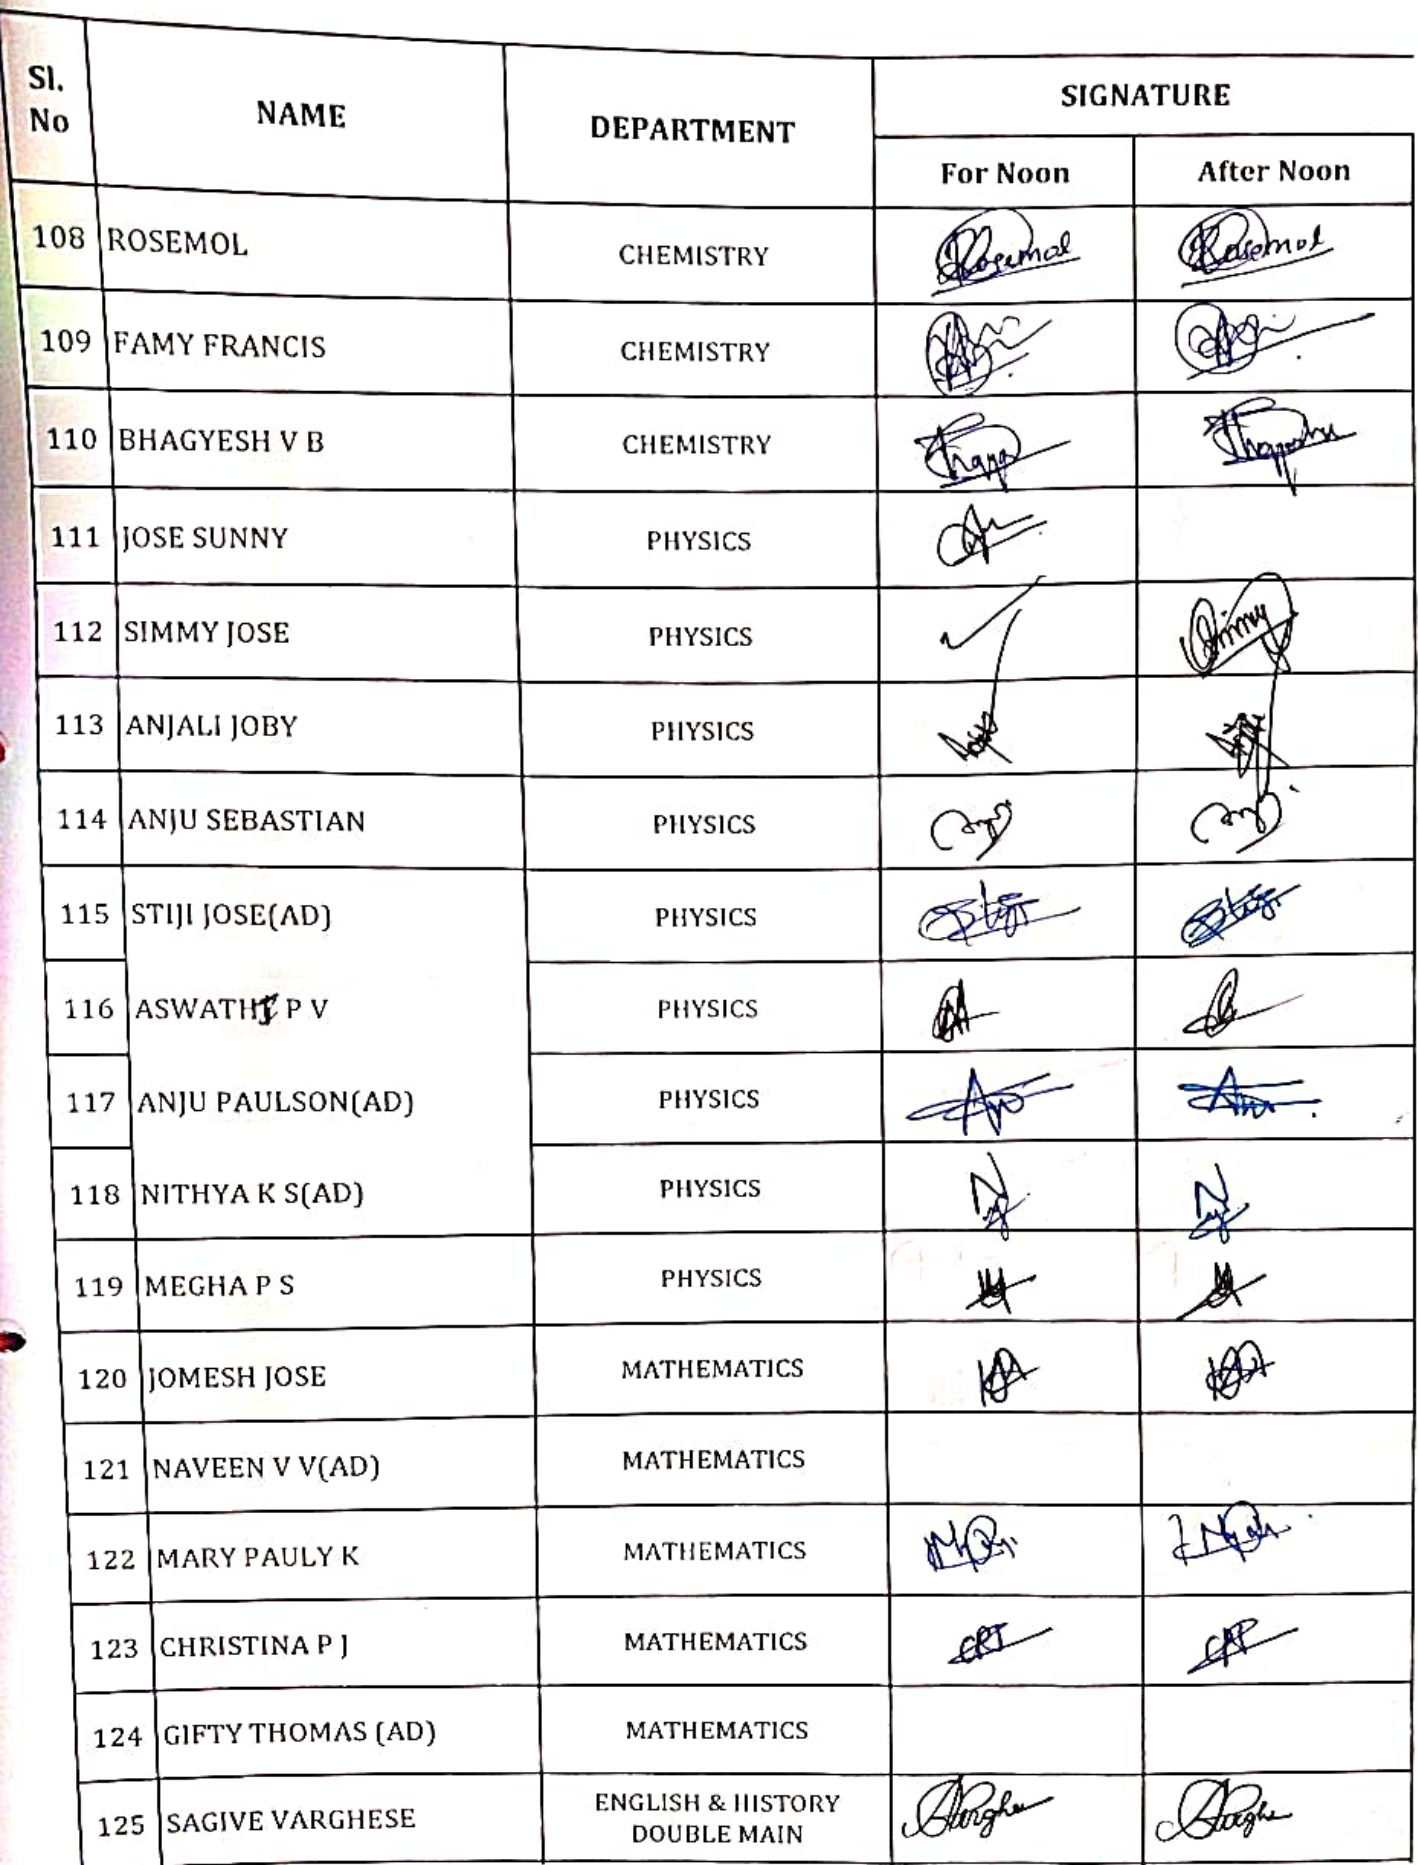 Sl. No NAME DEPARTMENT SIGNATURE
For Noon After Noon
108 ROSEMOL CHEMISTRY Rosemol Rosemol
109 FAMY FRANCIS CHEMISTRY
110 BHAGYESH V B CHEMISTRY
111 JOSE SUNNY PHYSICS
112 SIMMY JOSE PHYSICS Simmy
113 ANJALI JOBY PHYSICS
114 ANJU SEBASTIAN PHYSICS
115 STIJI JOSE(AD) PHYSICS
116 ASWATHI P V PHYSICS
117 ANJU PAULSON(AD) PHYSICS
118 NITHYA K S(AD) PHYSICS
119 MEGHA P S PHYSICS
120 JOMESH JOSE MATHEMATICS
121 NAVEEN V V(AD) MATHEMATICS
122 MARY PAULY K MATHEMATICS
123 CHRISTINA P J MATHEMATICS
124 GIFTY THOMAS (AD) MATHEMATICS
125 SAGIVE VARGHESE ENGLISH & HISTORY
DOUBLE MAIN